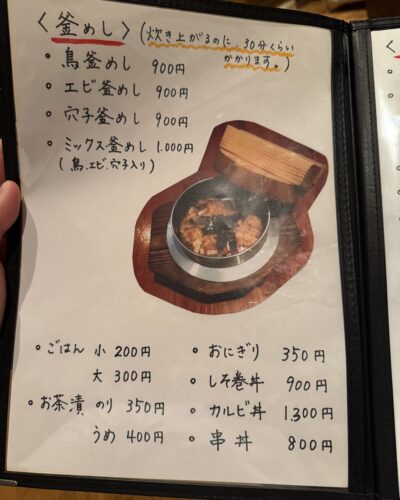 〈釜めし〉(炊き上がるのに、30分くらい
かかります。)
・鳥釜めし 900円
・エビ釜めし 900円
・穴子釜めし 900円
・ミックス釜めし 1,000円
(鳥、エビ、穴子入り)
・ごはん 小 200円
大 300円
・お茶漬 のり 350円
うめ 400円
・おにぎり 350円
・しそ巻丼 900円
・カルビ丼 1,300円
・串丼 800円